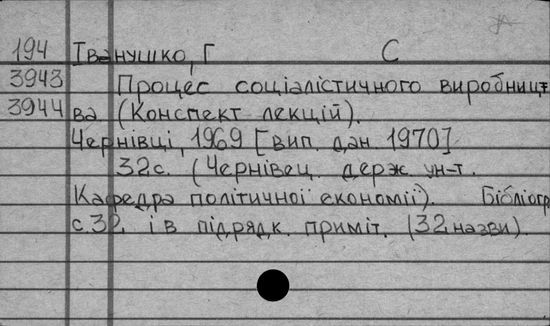 194 Іванушко, Г С
3943 Процес соціалістичного виробницт
3944 ва. (Конспект лекцій).
Чернівці, 1969 [вип. дан. 1970]
32 с. (Чернівец. держ. ун-т.
Кафедра політичної економії). Бібліогр
с. 32. і в підрядк. приміт. (32 назви).